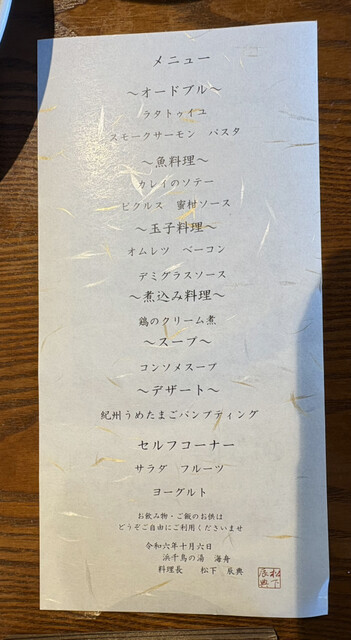 メニュー
～オードブル～
ラタトゥイユ
スモークサーモン　パスタ
～魚料理～
カレイのソテー
ピクルス　蜜柑ソース
～玉子料理～
オムレツ　ベーコン
デミグラスソース
～煮込み料理～
鶏のクリーム煮
～スープ～
コンソメスープ
～デザート～
紀州うめたまごパンプティング
セルフコーナー
サラダ　フルーツ
ヨーグルト
お飲み物・ご飯のお供は
どうぞご自由にご利用くださいませ
令和六年十月六日
浜千鳥の湯　海舟
料理長　松下　辰典
松下
辰典